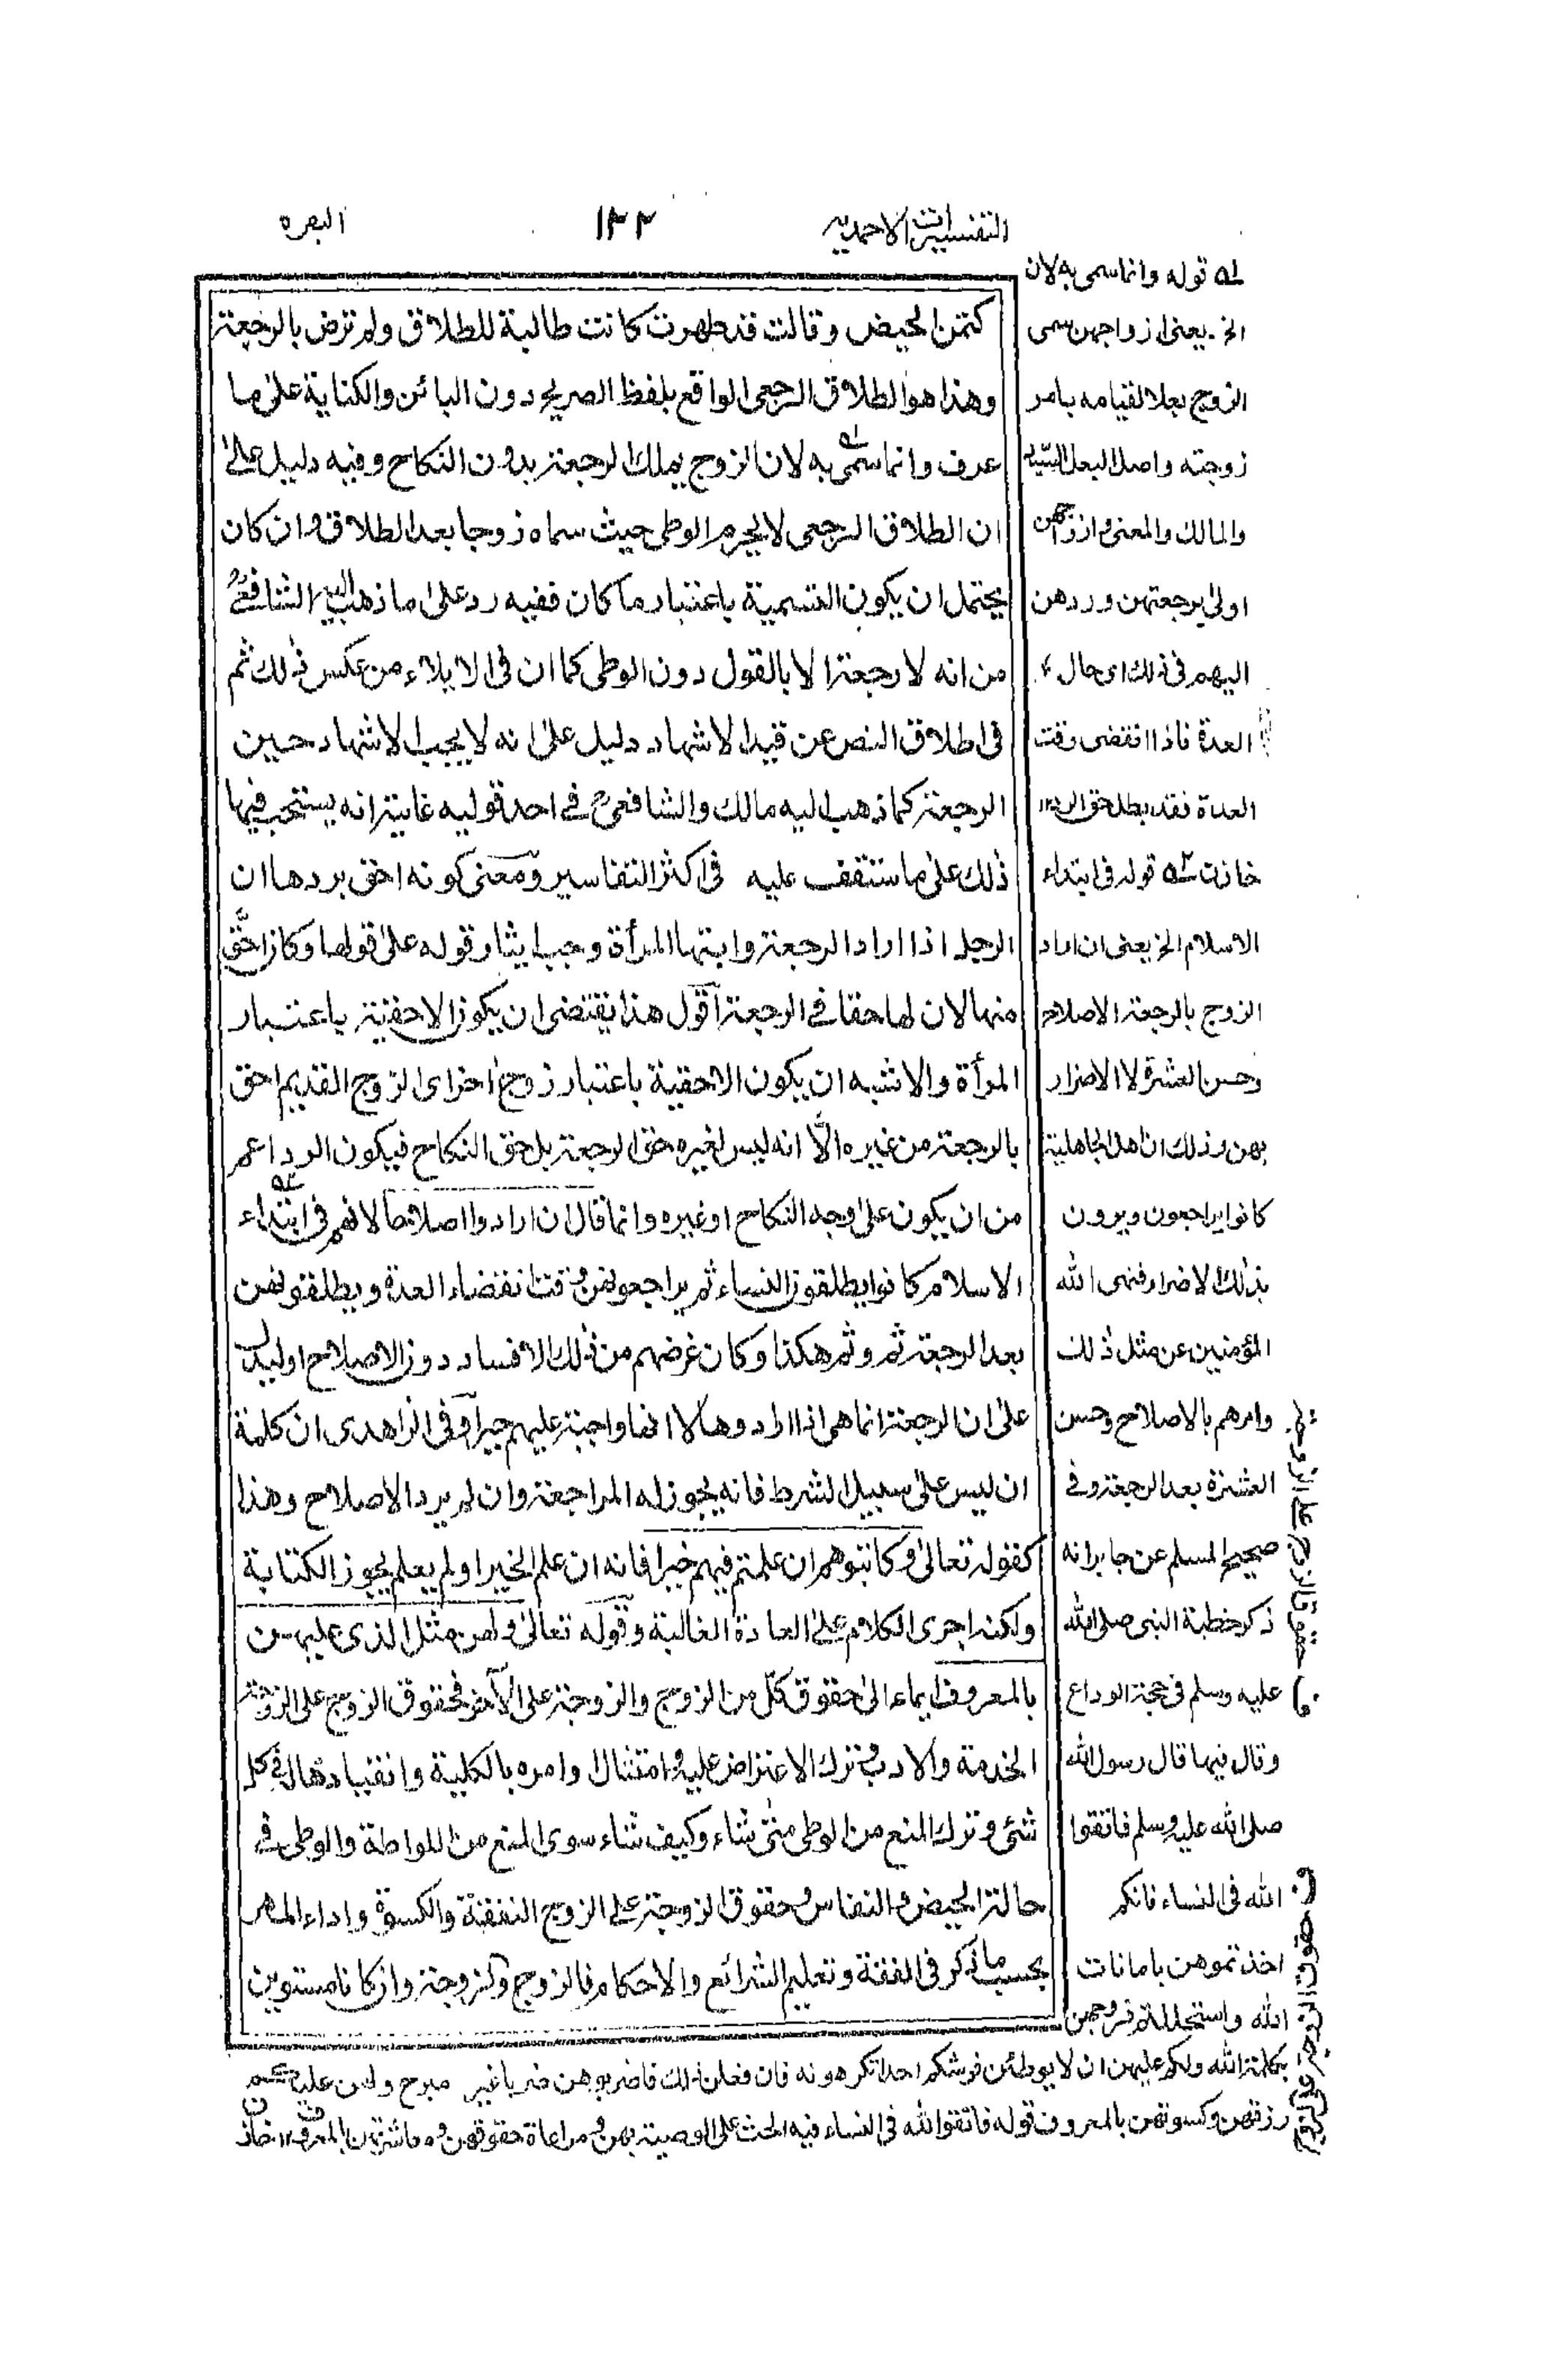 التفسيرات الاحمديه ١٣٢ البقره
كتمن الحيض وقالت قد طهرت كانت طالبة للطلاق ولم ترض بالرجعة
وهذا هو الطلاق الرجعى الواقع بلفظ الصريح دون البائن والكناية على ما
عرف وانما سمى به لان الزوج يملك الرجعة بدون النكاح وفيه دليل على
ان الطلاق الرجعى لا يحرم الوطى حيث سماه زوجا بعد الطلاق وان كان
يحتمل ان يكون التسمية باعتبار ما كان ففيه رد على ما ذهب اليه الشافعى
من انه لا رجعة الا بالقول دون الوطى كما ان فى الايلاء من عكس ذلك ثم
فى اطلاق النص عن قيد الاشهاد دليل على انه لا يجب الاشهاد حين
الرجعة كما ذهب اليه مالك والشافعى فى احد قوليه غايته انه يستحب فيها
ذلك على ما ستقف عليه فى اكثر التفاسير ومعنى كونه احق بردها ان
الرجل اذا اراد الرجعة وابتها المرأة وجب ايثار قوله على قولها وكان احق
منها لا ان لها حقا فى الرجعة اقول هذا يقتضى ان يكون الاحقية باعتبار
المرأة والاشبه ان يكون الاحقية باعتبار زوج اخر اى الزوج القديم احق
بالرجعة من غيره الا انه ليس لغيره حق الرجعة بل حق النكاح فيكون الرد اعم
من ان يكون على وجه النكاح او غيره وانما قال ان ارادوا اصلاحا لانهم فى ابتداء
الاسلام كانوا يطلقون النساء ثم يراجعونهن وقت انقضاء العدة ويطلقونهن
بعد الرجعة ثم وثم هكذا وكان غرضهم من ذلك الافساد دون الاصلاح او ليدل
على ان الرجعة انما هى اذا ارادوها لا انها واجبة عليهم جبرا وفى الزاهدى ان كلمة
ان ليس على سبيل الشرط فانه يجوز له المراجعة وان لم يرد الاصلاح وهذا
كقوله تعالى وكاتبوهم ان علمتم فيهم خيرا فانه ان علم الخير او لم يعلم يجوز الكتابة
ولكنه اجرى الكلام على العادة الغالبة وقوله تعالى ولهن مثل الذى عليهن
بالمعروف ايماء الى حقوق كل من الزوج والزوجة على الآخر فحقوق الزوج على الزوجة
الخدمة والادب وترك الاعتراض عليه وامتثال اوامره بالكلية وانقيادها له فى كل
شئ وترك المنع من الوطى متى شاء وكيف شاء سوى المنع من اللواطة والوطى فى
حالة الحيض والنفاس وحقوق الزوجة على الزوج النفقة والكسوة واداء المهر
بحسب ما ذكر فى الفقه وتعليم الشرائع والاحكام فالزوج والزوجة وان كانا مستويين
له قوله وانما سمى به لان
الخ يعنى ازواجهن سمى
الزوج بعلا لقيامه بامر
زوجته واصل البعل السيد
والمالك والمعنى وازواجهن
اولى برجعتهن وردهن
اليهم فى ذلك اى حال
العدة فاذا انقضى وقت
العدة فقد بطل حق الرد ١٢
خازن ٢ه قوله فى ابتداء
الاسلام الخ يعنى ان اراد
الزوج بالرجعة الاصلاح
وحسن العشرة لا الاضرار
بهن وذلك ان اهل الجاهلية
كانوا يراجعون ويرون
بذلك الاضرار فنهى الله
المؤمنين عن مثل ذلك
وامرهم بالاصلاح وحسن
العشرة بعد الرجعة وفى
صحيح المسلم عن جابر انه
ذكر خطبة النبى صلى الله
عليه وسلم فى حجة الوداع
وقال فيها قال رسول الله
صلى الله عليه وسلم فاتقوا
الله فى النساء فانكم
اخذتموهن بامانات
الله واستحللتم فروجهن
بكلمة الله ولكم عليهن ان لا يوطئن فرشكم احدا تكرهونه فان فعلن ذلك فاضربوهن ضربا غير مبرح ولهن عليكم
رزقهن وكسوتهن بالمعروف قوله فاتقوا الله فى النساء فيه الحث على الوصية بهن ومراعاة حقوقهن ومعاشرتهن بالمعروف ١٢ خازن
حقوق الزوج على الزوجة
حقوق الزوجة على الزوج